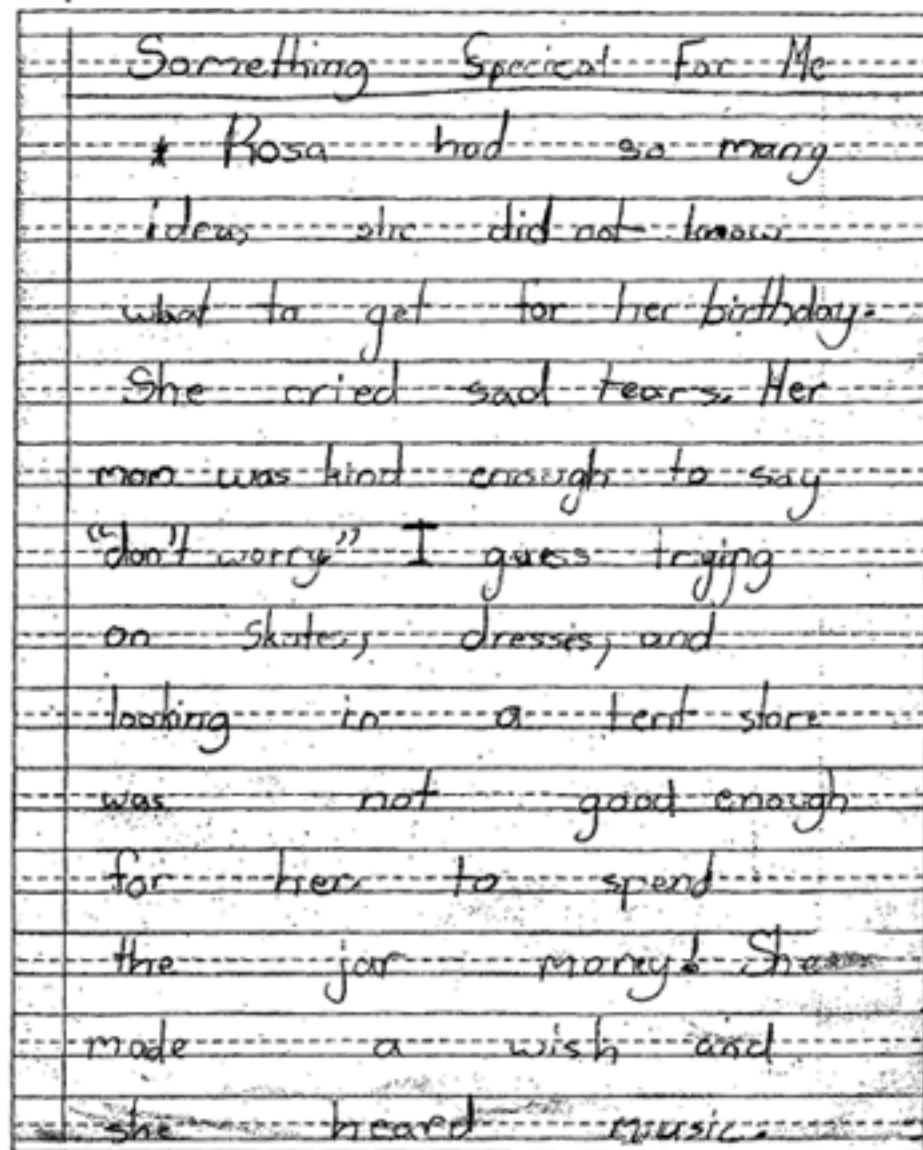 Something Special For Me
* Rosa had so many
ideas she did not know
what to get for her birthday.
She cried sad tears. Her
mom was kind enough to say
"don't worry" I guess trying
on skates, dresses, and
looking in a tent store
was not good enough
for her to spend
the jar money! She
made a wish and
she heard music.